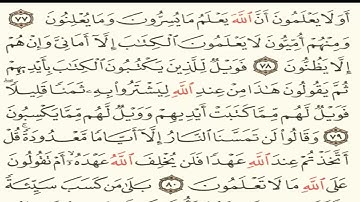 أَوَلَا يَعْلَمُونَ أَنَّ ٱللَّهَ يَعْلَمُ مَا يُسِرُّونَ وَمَا يُعْلِنُونَ ٧٧
وَمِنْهُمْ أُمِّيُّونَ لَا يَعْلَمُونَ ٱلْكِتَٰبَ إِلَّآ أَمَانِيَّ وَإِنْ هُمْ
إِلَّا يَظُنُّونَ ٧٨ فَوَيْلٌ لِّلَّذِينَ يَكْتُبُونَ ٱلْكِتَٰبَ بِأَيْدِيهِمْ
ثُمَّ يَقُولُونَ هَٰذَا مِنْ عِندِ ٱللَّهِ لِيَشْتَرُوا۟ بِهِۦ ثَمَنًا قَلِيلًا
فَوَيْلٌ لَّهُم مِّمَّا كَتَبَتْ أَيْدِيهِمْ وَوَيْلٌ لَّهُم مِّمَّا يَكْسِبُونَ
٧٩ وَقَالُوا۟ لَن تَمَسَّنَا ٱلنَّارُ إِلَّآ أَيَّامًا مَّعْدُودَةً قُلْ
أَتَّخَذْتُمْ عِندَ ٱللَّهِ عَهْدًا فَلَن يُخْلِفَ ٱللَّهُ عَهْدَهُۥٓ أَمْ تَقُولُونَ
عَلَى ٱللَّهِ مَا لَا تَعْلَمُونَ ٨٠ بَلَىٰ مَن كَسَبَ سَيِّئَةً